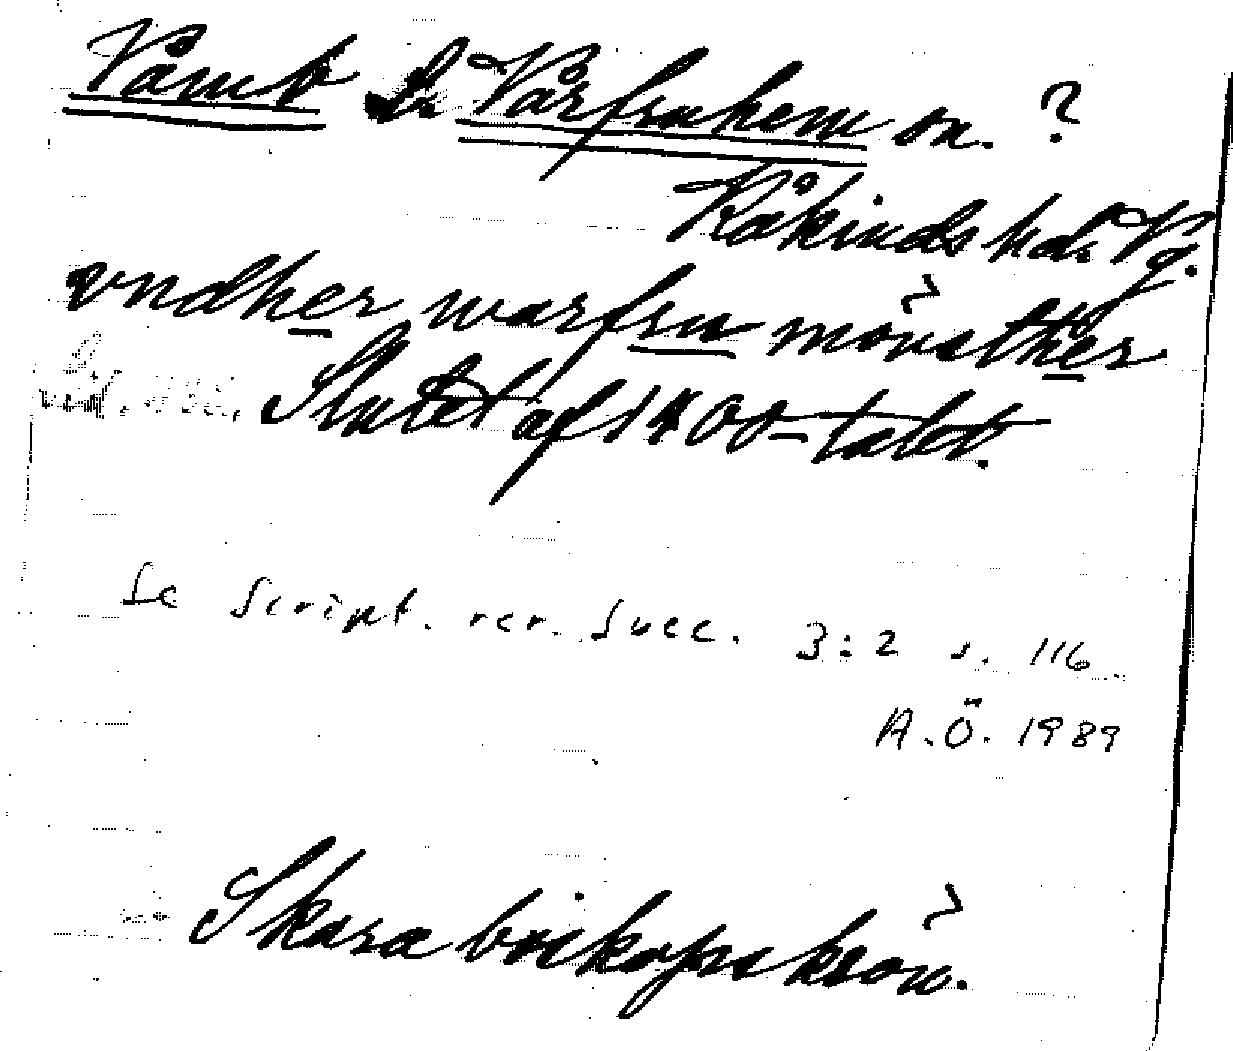 Våmb l. Vårfruhem sn. ?
Kåkinds hd. Vg.
vndher warfru mönsther
Slutet af 1400-talet.
Se Script. rer. Suec. 3:2 s. 116
A.Ö. 1989
Skara biskopskrön.